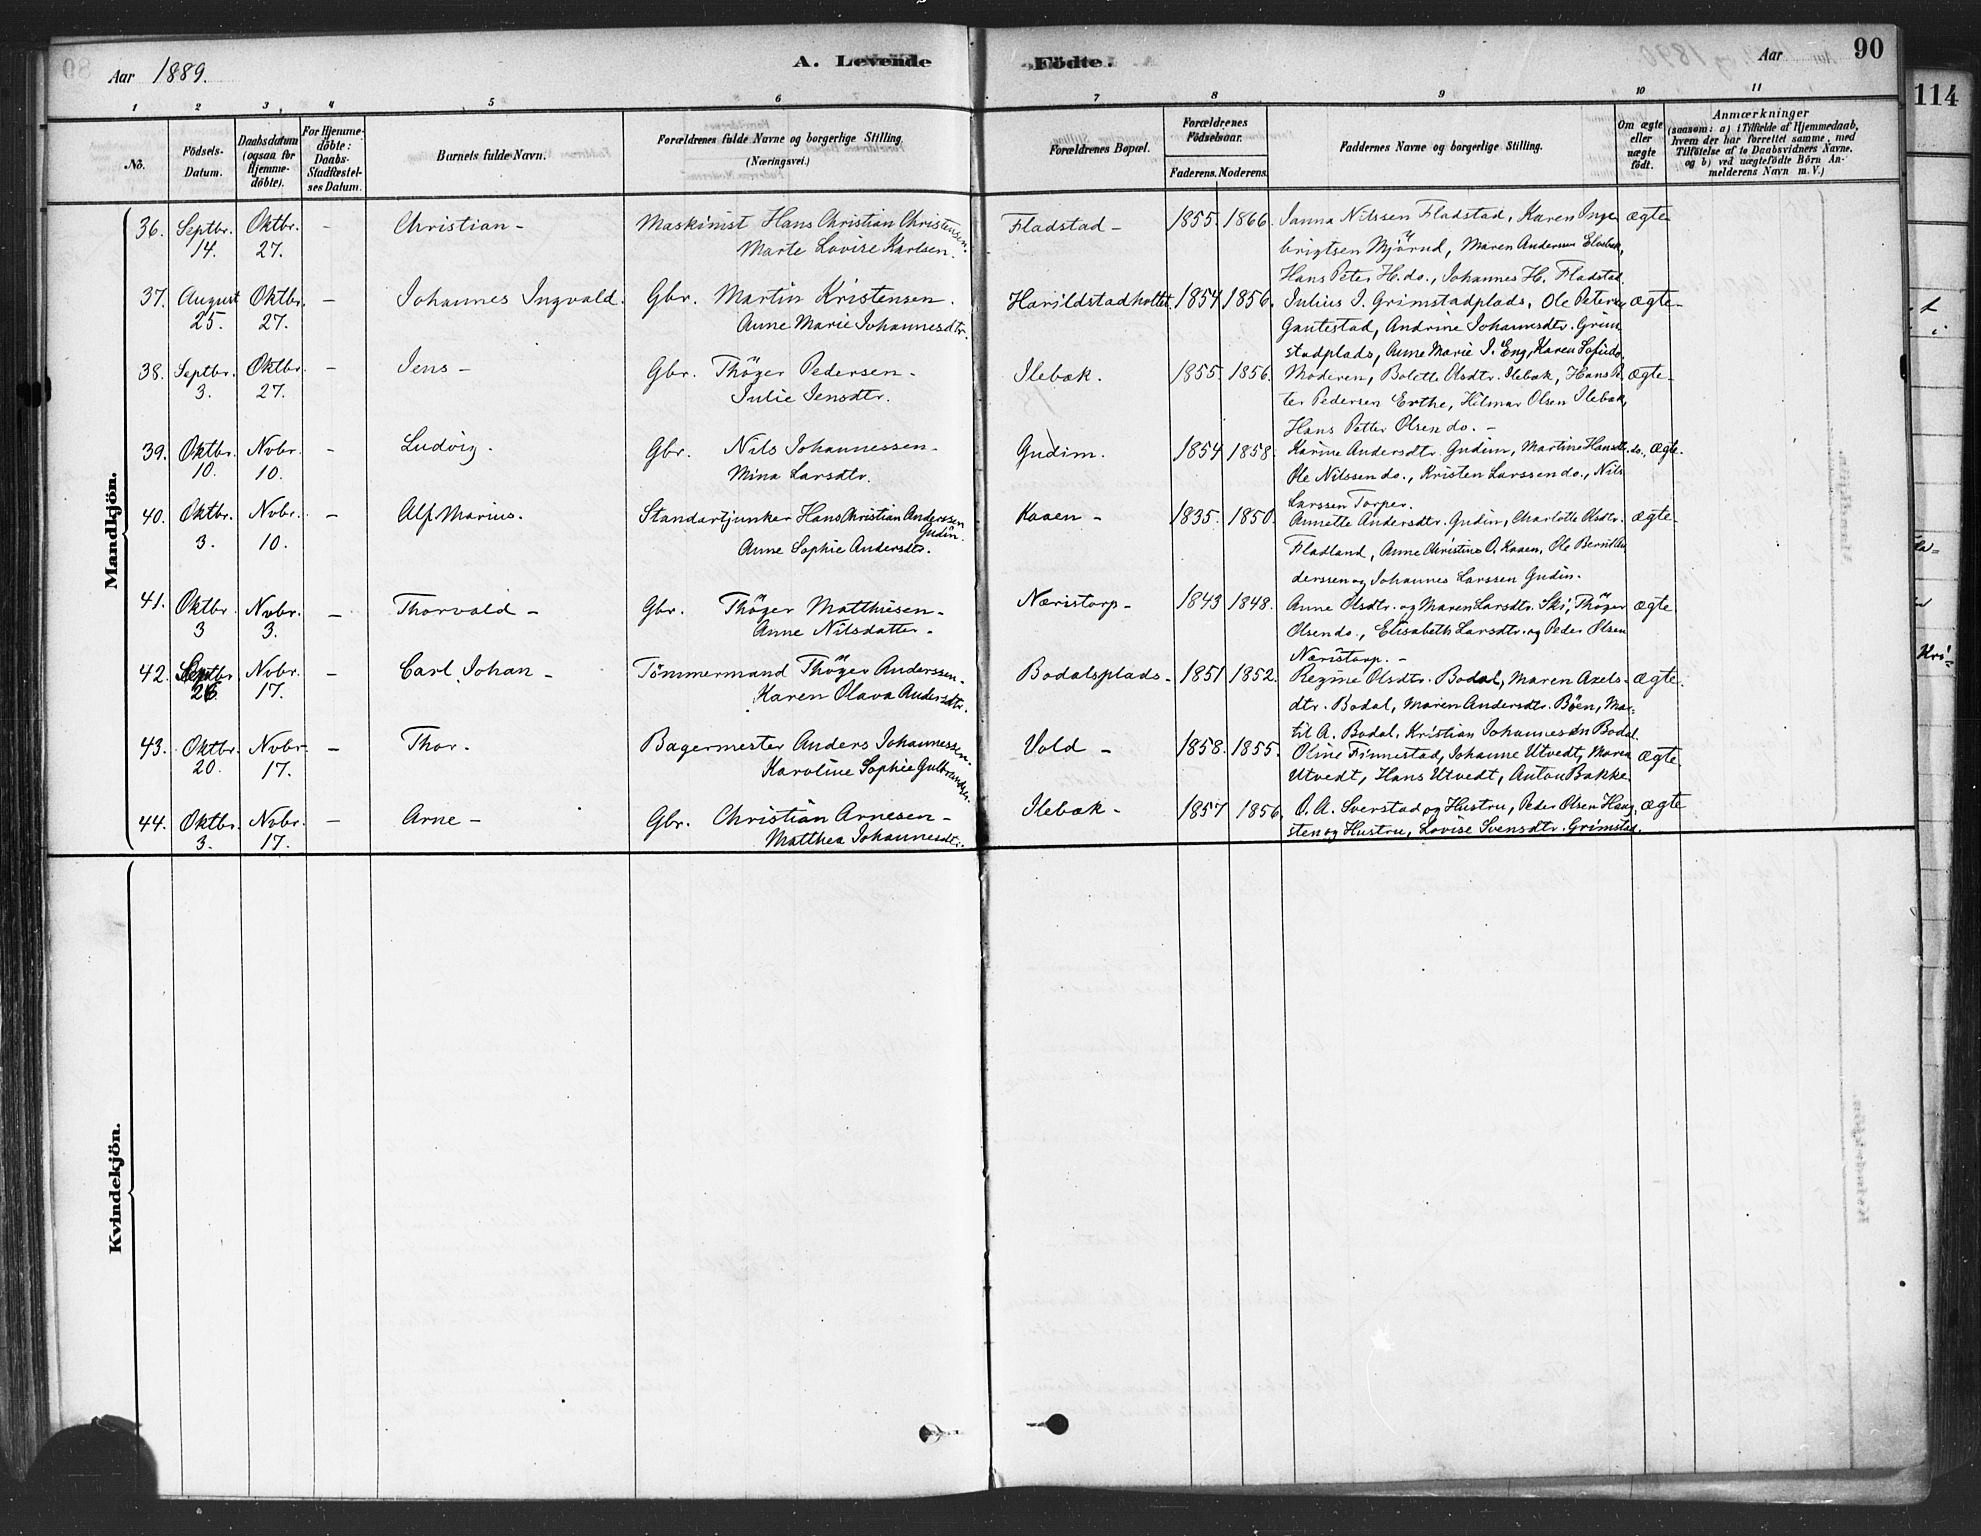 Aar 1889.
A. Levende
Födte.
Aar
90
114
1 2 3 4 5 6 7 8 9 10 11
No.
Födsels-Datum.
Daabsdatum (ogsaa for Hjemmedöbte).
For Hjemmedöbte: Daabs-Stadfæstelses Datum.
Barnets fulde Navn.
Forældrenes fulde Navne og borgerlige Stilling (Næringsvei.)
Forældrenes Bopæl.
Forældrenes Födselsaar.
Faderens. Moderens.
Faddernes Navne og borgerlige Stilling.
Om ægte eller uægte födt.
Anmærkninger
(saasom: a) i Tilfælde af Hjemmedaab,
hvem der har forrettet samme, med
Tilföielse af to Daabsvidners Navne.
og b) ved uægtefödte Börn Anmelderens Navn m.V.)
Mandkjön.
36. Septbr. 14. Oktbr. 27. – Christian – Maskinist Hans Christian Christensen. Marte Lovise Karlsen. Fladstad – 1855. 1866. Janna Nilssen Fladstad, Karen Inge- ægte
brigtsen Mjörud, Maren Andersen Elvebak,
Hans Peter H. do., Johannes H. Fladstad.
37. August 25. Oktbr. 27. – Johannes Ingvald. Gbr. Martin Kristensen. Anne Marie Johannesdtr. Harildstadholtet. 1854 1856. Julius J. Grimstadplads, Ole Petersen ægte –
Gautestad, Andrine Johannsdtr. Grim-
stadplads, Anne Marie J. Eng, Karen Sofie do.
38. Septbr. 3. Oktbr. 27. – Jens – Gbr. Thöger Pedersen – Julie Jensdtr. Ilebæk. 1855. 1856. Moderen, Bolette Olsdtr. Ilebæk, Hans Pe- ægte –
ter Pedersen Erthe, Hilmar Olsen Ilebæk,
Hans Petter Olsen do. –
39. Oktbr. 10. Novbr. 10. – Ludvig. Gbr. Nils Johannessen – Mina Larsdtr. Gudim. 1854 1858. Karine Andersdtr. Gudim, Martine Hansdtr. do., ægte –
Ole Nilssen do., Kristen Larssen do., Nils
Larssen Torper.
40. Oktbr. 3. Novbr. 10. – Alf Marius. Standartjunker Hans Christian Andersen Gudin. Anne Sophie Andersdtr. Kaaen – 1835. 1850. Annette Andersdtr. Gudin, Charlotte Olsdtr. ægte –
Fladland, Anne Christine O. Kaaen, Ole Bernt An-
derssen og Johannes Larssen Gudin.
41. Oktbr. 3 Novbr. 3. – Thorvald – Gbr. Thöger Matthiesen – Anne Nilsdatter. Næristorp – 1843 1848. Anne Olsdtr. og Maren Larsdtr. Ski, Thöger ægte
Olsen do., Elisabeth Larsdtr. og Peder Olsen
Næristorp. –
42. Septbr. 26. Novbr. 17. – Carl Johan – Tömmermand Thöger Anderssen. Karen Olava Andersdtr. Bodalsplads – 1851 1852. Regine Olsdtr. Bodal, Maren Axels- ægte.
dtr. Bodal, Maren Andersdtr. Böen, Mar-
til A. Bodal, Kristian Johannesen Bodal.
43. Oktbr. 20. Novbr. 17. – Thor. Bagermester Anders Johannessen. Karoline Sophie Gulbrandsdtr. Vold – 1858. 1855. Oline Finnestad, Johanne Utvedt, Maren ægte
Utvedt, Hans Utvedt, Anton Bakke
44. Oktbr. 3. Novbr. 17. – Arne – Gbr. Christian Arnesen – Matthea Johannesdtr. Ilebæk – 1857 1856. O. A. Sverstad og Hustru, Peder Olsen Haug- ægte
sten og Hustru, Lovise Svensdtr. Grimstad.
Kvindekjön.